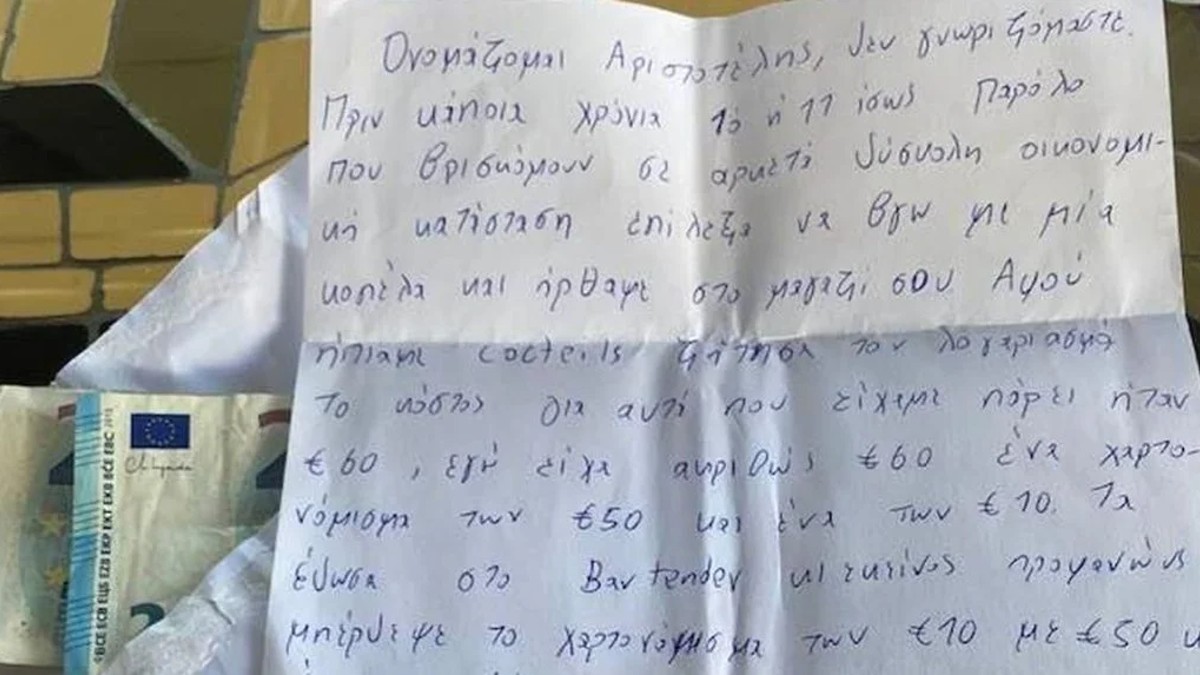 Ονομάζομαι Αριστοτέλης, δεν γνωριζόμαστε.
Πριν κάποια χρόνια 10 ή 11 ίσως Παρόλο
που βρισκόμουν σε αρκετά δύσκολη οικονομι-
κή κατάσταση επέλεξα να βγω με μία
κοπέλα και ήρθαμε στο μαγαζί σου Αφού
ήπιαμε cocteils ζήτησα τον λογαριασμό
το κόστος για αυτά που είχαμε πάρει ήταν
€60, εγώ είχα ακριβώς €60 ένα χαρτο-
νόμισμα των €50 και ένα των €10. Τα
έδωσα στο Bartender κι εκείνος προφανώς
μπέρδεψε το χαρτονόμισμα των €10 με €50
BCE ECB ЕЦБ EZB EKP EKT EKB BĊE EBC 2015